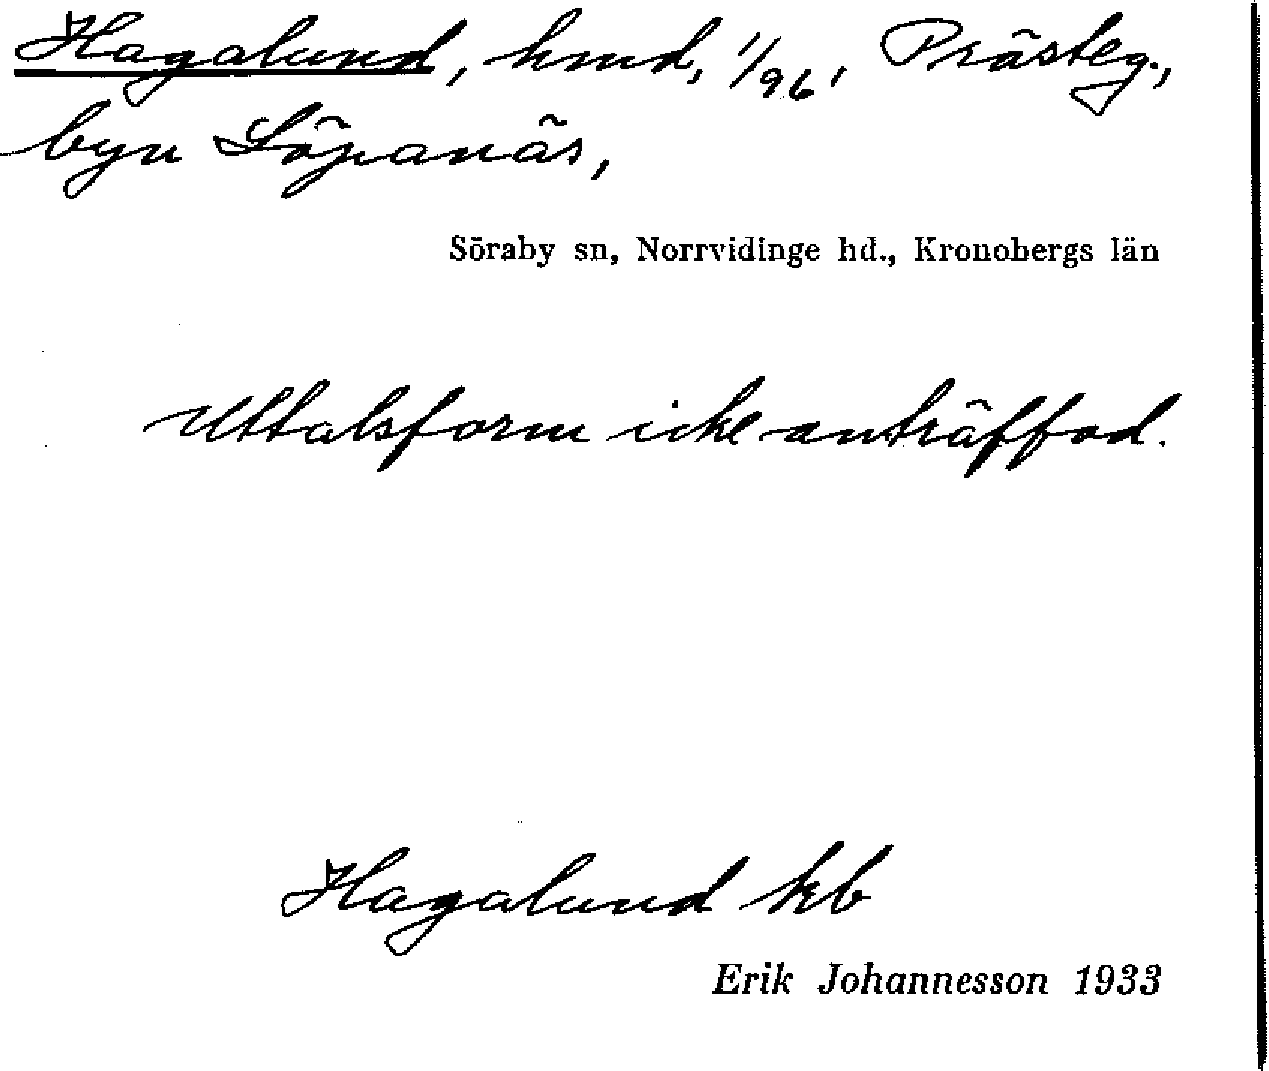 Hagalund, hmd, 1/96, Prästeg.,
byn Löpanäs,
Söraby sn, Norrvidinge hd., Kronobergs län
Uttalsform icke anträffad.
Hagalund kb
Erik Johannesson 1933